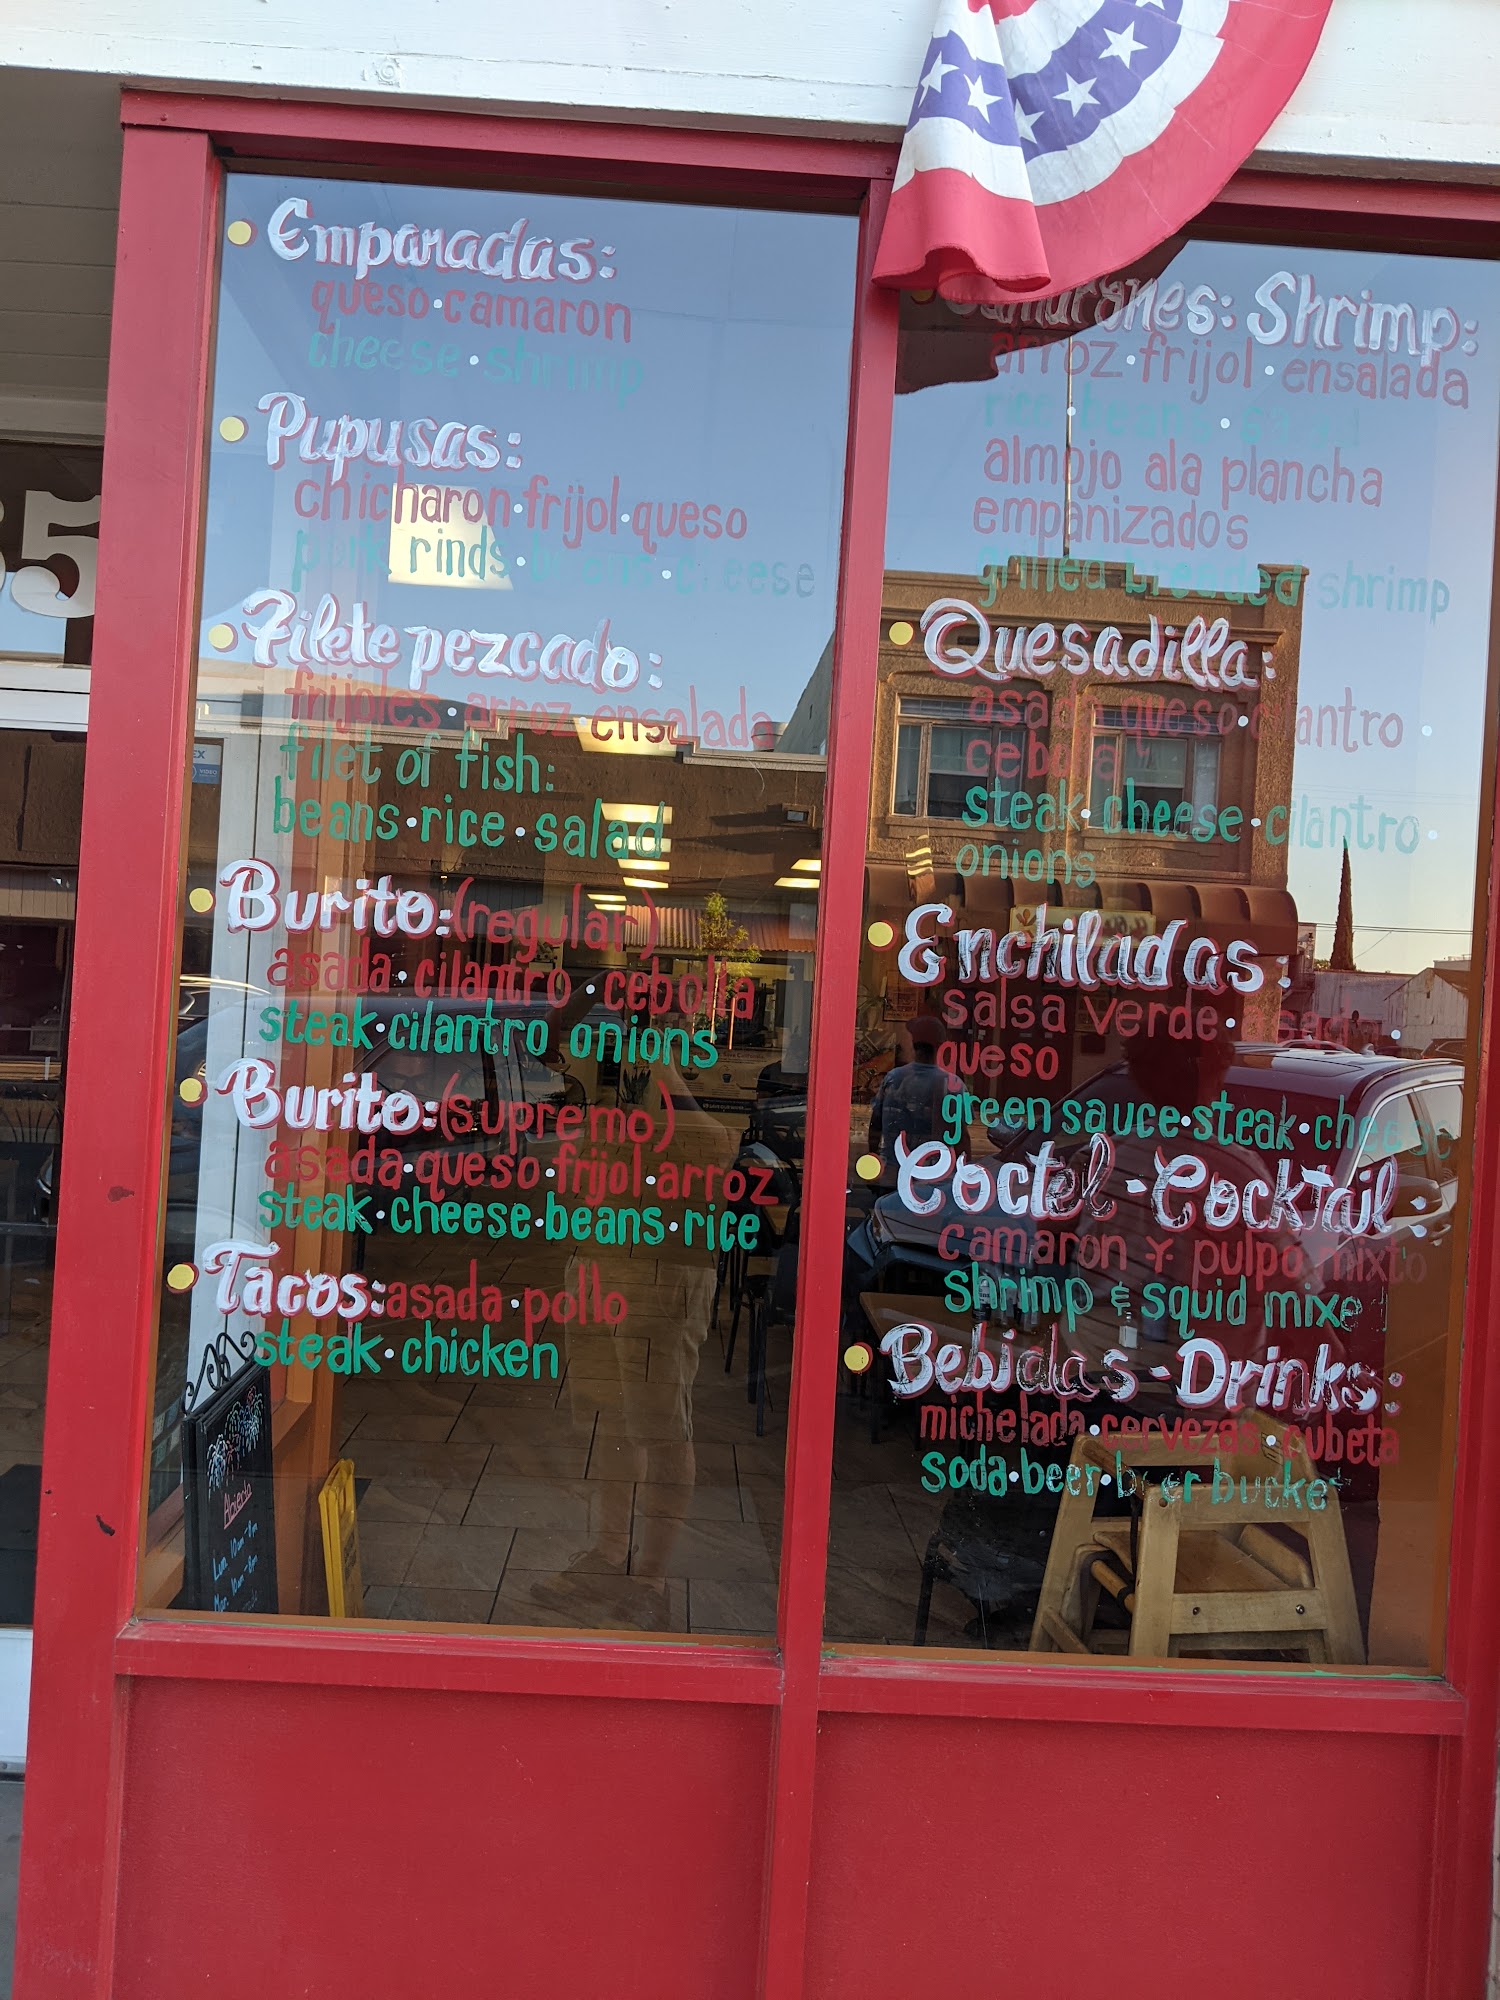 Empanadas:
queso·camaron
cheese·shrimp
Pupusas:
chicharon·frijol·queso
pork rinds·beans·cheese
Filete pezcado:
frijoles·arroz·ensalada
filet of fish:
beans·rice·salad
Burito:(regular)
asada·cilantro·cebolla
steak·cilantro onions
Burito:(supremo)
asada·queso·frijol·arroz
steak·cheese·beans·rice
Tacos:asada·pollo
steak·chicken
Camarones: Shrimp:
arroz·frijol·ensalada
rice·beans·salad
almojo ala plancha
empanizados
grilled breaded shrimp
Quesadilla:
asada queso·cilantro·
cebolla
steak·cheese·cilantro·
onions
Enchiladas:
salsa verde·asada·
queso
green sauce·steak·cheese
Coctel-Cocktail:
camaron y pulpo mixto
shrimp & squid mixed
Bebidas-Drinks:
michelada·cervezas·cubeta
soda·beer·beer bucket
5
Abierto
Lun. 10am-8pm
Mar. 10am-8pm